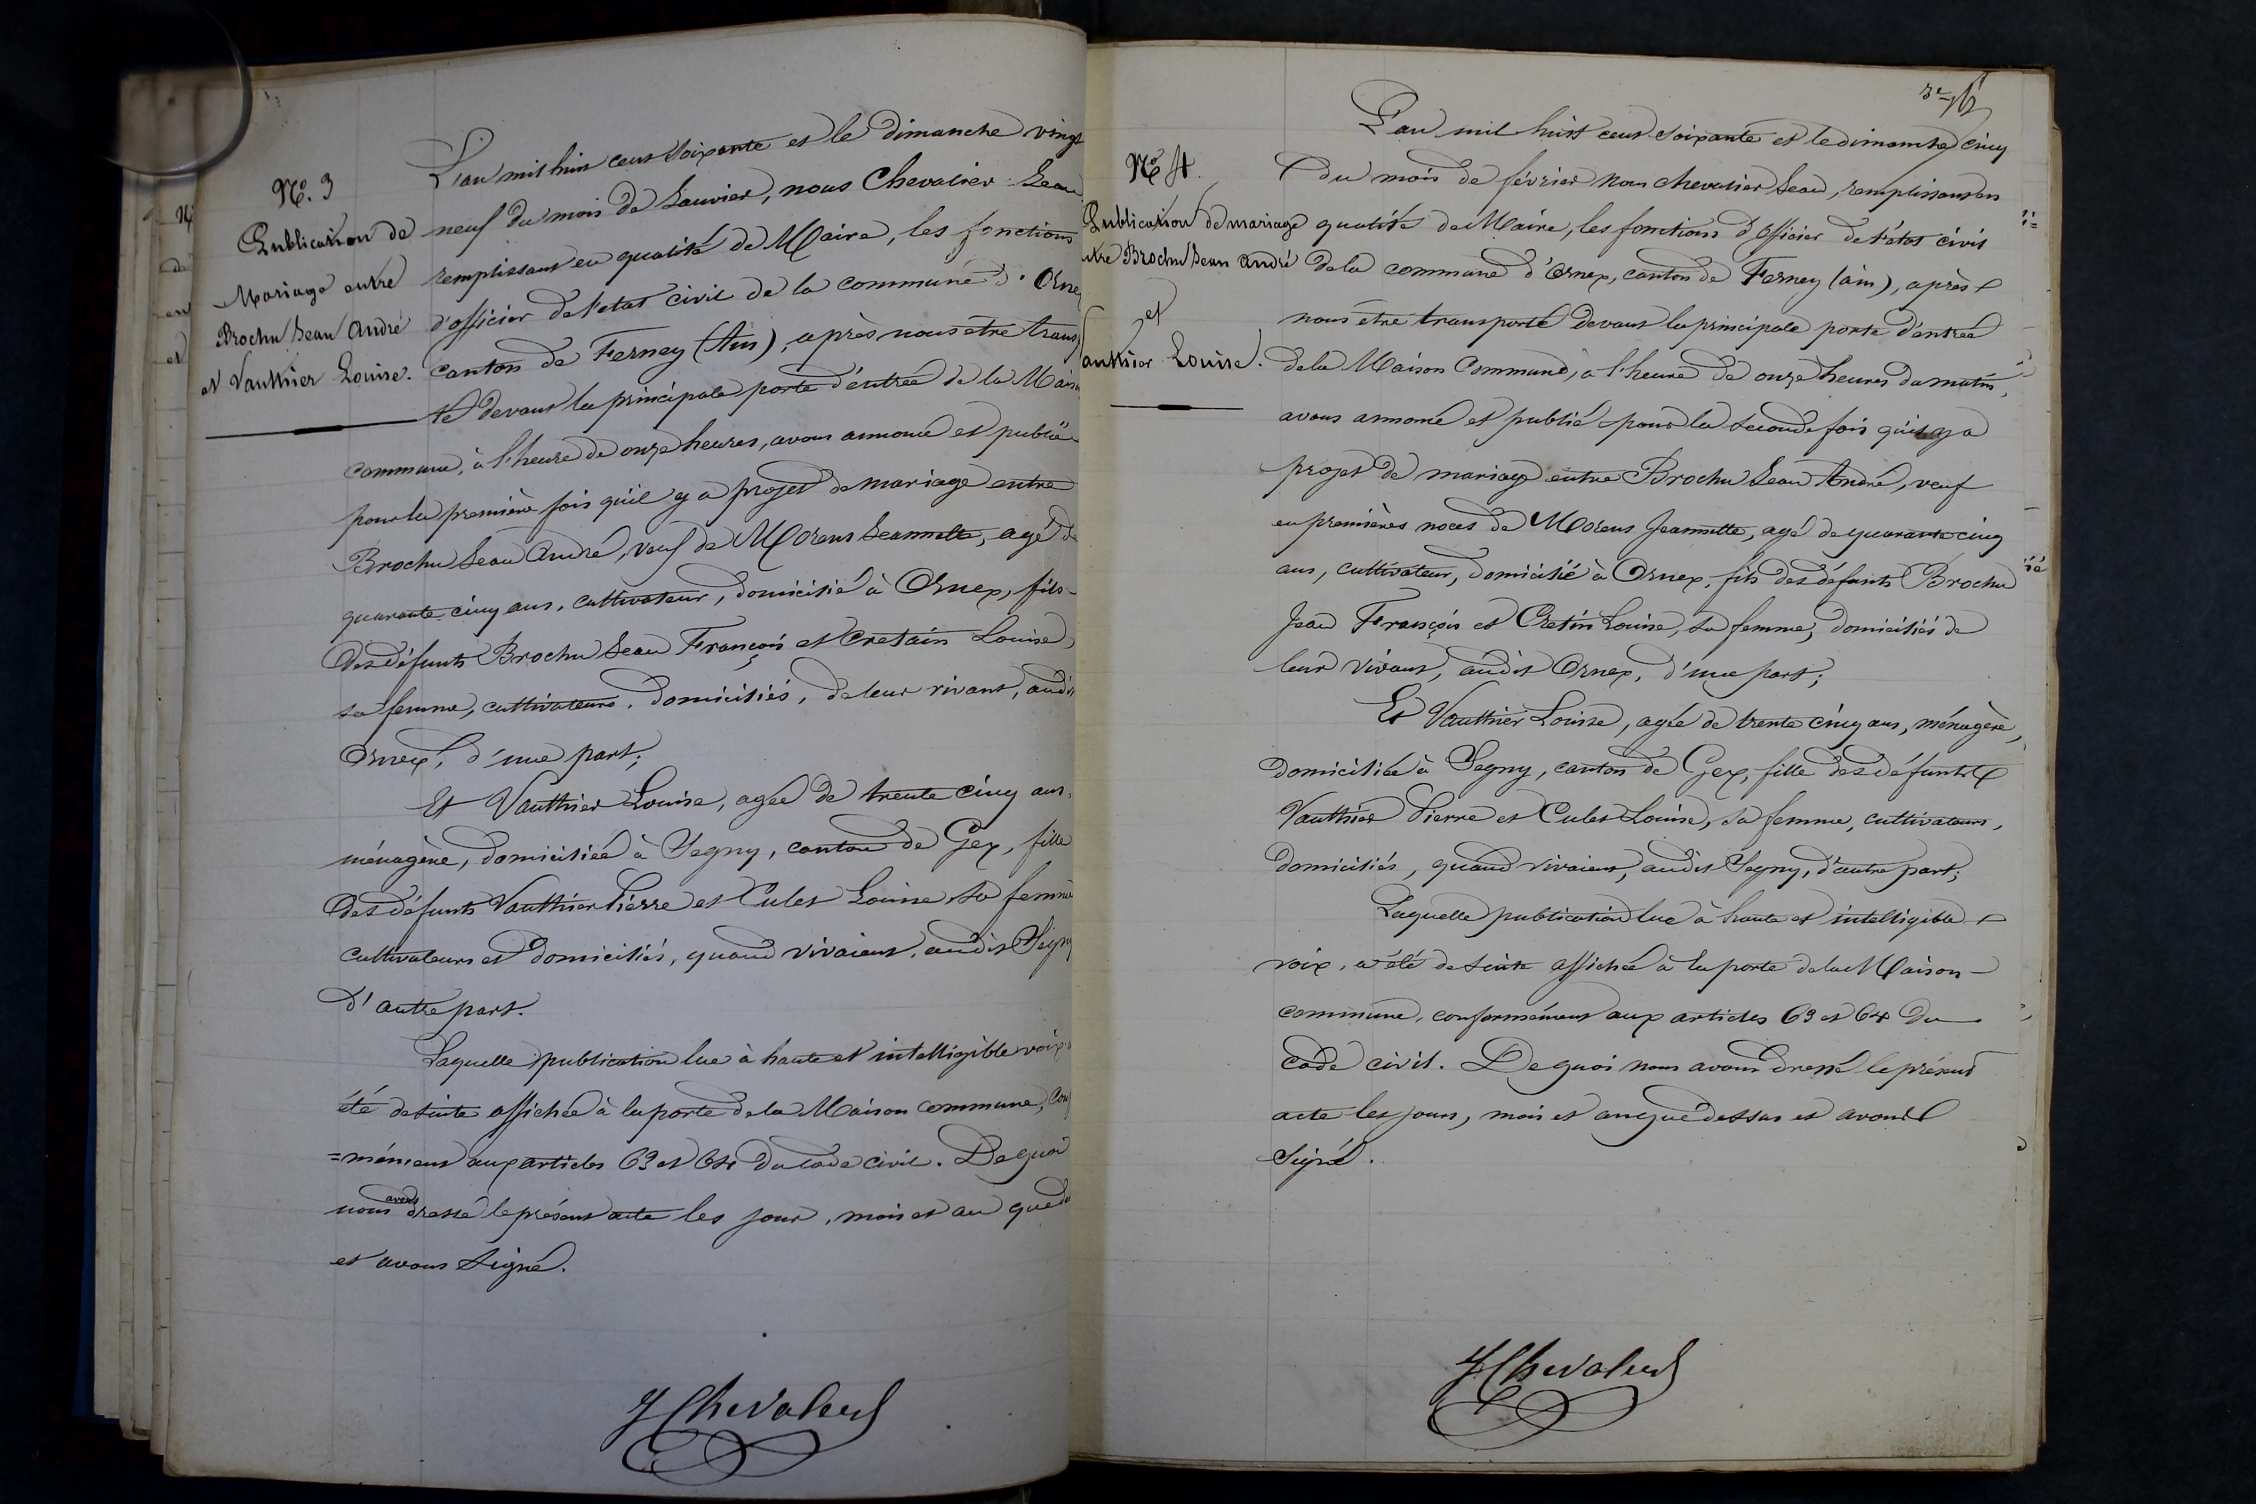 No. 3
Publication de
Mariage entre
Brochu Jean André
et Vauthier Louise.
L'an mil huit cent soixante et le dimanche vingt
neuf du mois de Janvier, nous Chevalier Jean
remplissant en qualité de Maire, les fonctions
d'officier de l'etat civil de la commune d'Orne
canton de Ferney (Ain), après nous être trans
té devant la principale porte d'éntrée de la Maiso
commune, à l'heure de onze heures, avons annoncé et publié
pour la première fois qu'il y a projet de mariage entre
Brochu Jean André, veuf de Morens Jeannette, agé de
quarante cinq ans, cultivateur, domicilié à Ornex, fils
des défunts Brochu Jean François et Cretain Louise,
sa femme, cultivateurs, domiciliés, de leur vivant, audit
Ornex, d'une part;
Et Vauthier Louise, agée de trente cinq ans,
ménagère, domiciliée à Segny, canton de Gex, fille
des défunts Vauthier Pierre et Culet Louise sa femme
cultivateurs et domiciliés, quand vivaient, audit Segny
d'autre part.
Laquelle publication lue à haute et intelligible voix a
été de suite affichée à la porte de la Maison commune, con
=mément aux articles 63 et 64 du code civil. De quoi
nous avons dressé le présent acte les jour, mois et an que de
et avons signé.
J Chevalier
3e
No 4.
Publication de mariage
ntre Brochu Jean André
et
authier Louise.
L'an mil huit cent soixante et le dimanche cinq
du mois de février nous chevalier Jean, remplissant en
qualité de Maire, les fonctions d'officier de l'état civil
de la commune d'Ornex, canton de Ferney (ain), après
nous être transporté devant la principale porte d'entrée
de la Maison Commune, à l'heure de onze heures du matin,
avons annoncé et publié pour la seconde fois qu'il y a
projet de mariage entre Brochu Jean André, veuf
en premières noces de Morens Jeannette, agé de quarante cinq
ans, cultivateur, domicilié à Ornex, fils des défunts Brochu
Jean François et Cretin Louise, sa femme, domiciliés de
leur vivant, audit Ornex, d'une part;
Et Vauthier Louise, agée de trente cinq ans, ménagère,
domiciliée à Segny, canton de Gex, fille des défunts
Vauthier Pierre et Culet Louise, sa femme, cultivateurs,
domiciliés, quand vivaient, audit Segny, d'autre part;
Laquelle publication lue à haute et intelligible
voix, a été de suite affichée à la porte de la Maison
commune, conformément aux articles 63 et 64 du
code civil. De quoi nous avons dressé le présent
acte les jours, mois et an que dessus et avons
signé.
J Chevalier